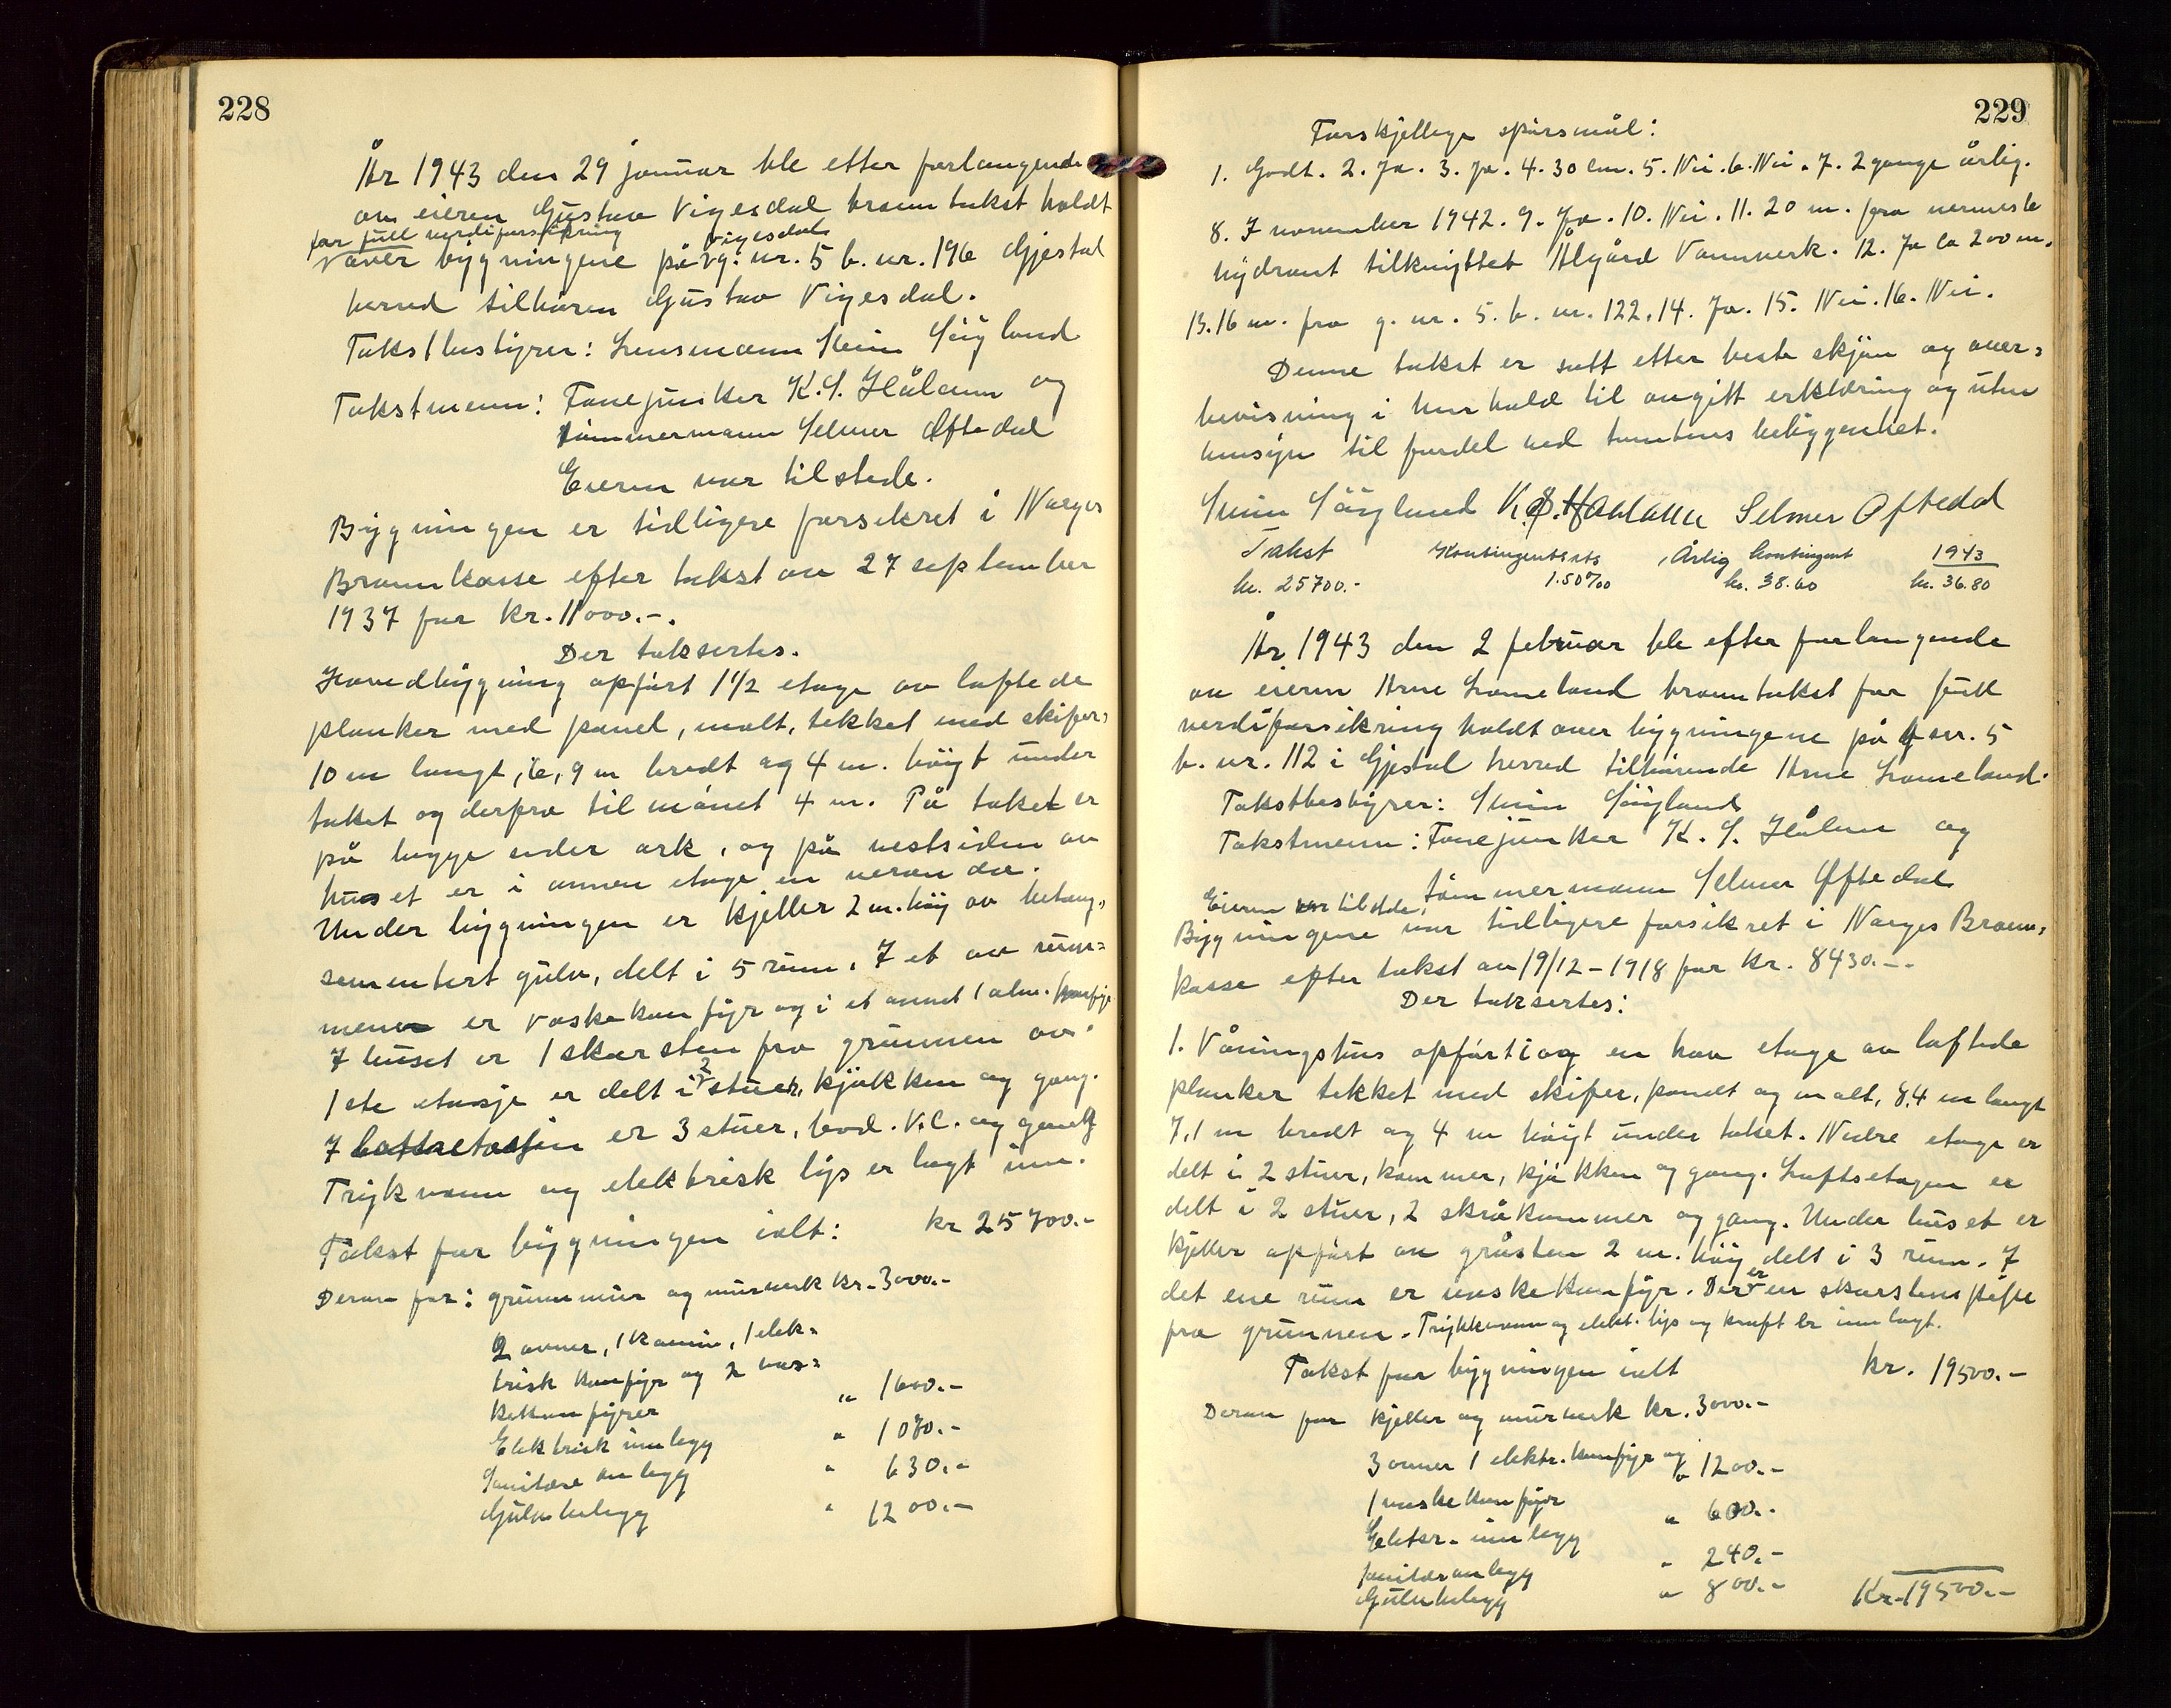 228
År 1943 den 29 januar ble etter forlangende
av eieren Gustav Vigesdal branntakst holdt
for full verdiforsikring Vigesdal
over bygningene på g. nr. 5 b. nr. 196 Gjestal
herred tilhören Gustav Vigesdal.
Takstbestyrer: Lensmann Svein Söyland
Takstmenn: Fanejunker K. S. Hålann og
tömmermann Selmer Oftedal
Eieren var tilstede.
Bygningen er tidligere forsikret i Norges
Brannkasse efter takst av 27 september
1937 for kr. 11000.-.
Der taksertes.
Hovedbygning opfört 1 1/2 etage av laftede
planker med panel, malt, tekket med skifer,
10 m langt, 6,9 m bredt og 4 m. höyt under
taket og derfra til mönet 4 m. På taket er
på begge sider ark, og på vestsiden av
huset er i annen etage en veranda.
Under bygningen er kjeller 2 m. höy av betong,
sementert gulv, delt i 5 rum. I et av rum=
mene er vaskekomfyr og i et annet 1 alm. komfyr
I huset er 1 skorsten fra grunnen av.
1ste etasje er delt i 2 stuer, kjökken og gang.
I loftsetasjen er 3 stuer, bod. V.C. og gang
Trykvann og elektrisk lys er lagt inn.
Takst for bygningen ialt: kr 25700.-
Derav for: grunnmur og murverk kr. 3000.-
2 ovner, 1 kamin, 1 elek=
trisk komfyr og 2 vas=
kekomfyrer " 1600.-
Elektrisk innlegg " 1070.-
Sanitære anlegg " 630.-
Gulvbelegg " 1200.-
229
Forskjellige spörsmål:
1. Godt. 2. Ja. 3. Ja. 4. 30 cm. 5. Nei. 6. Nei. 7. 2 gange årlig.
8. 7 november 1942. 9. Ja. 10. Nei. 11. 20 m. fra nermeste
hydrant tilknyttet Ålgård Vannverk. 12. Ja ca 200 m.
13. 16 m. fra g. nr. 5. b. nr. 122. 14. Ja. 15. Nei. 16. Nei.
Denne takst er satt etter beste skjön og over=
bevisning i henhold til avgitt erklæring og uten
hensyn til fordel ved tomtens beliggenhet.
Svein Söyland K. S. Haalann Selmer Oftedal
Takst Kontingentsats Årlig kontingent 1943
kr. 25700.- 1.50‰ kr. 38.60 kr. 36.80
År 1943 den 2 februar ble efter forlangende
av eieren Arne Lomeland branntakst for full
verdiforsikring holdt over bygningene på g nr. 5
b. nr. 112 i Gjestal herred tilhörende Arne Lomeland.
Takstbestyrer: Svein Söyland
Takstmenn: Fanejunker K. S. Hålan og
tömmermann Selmer Oftedal
Eieren var tilstede.
Bygningene var tidligere forsikret i Norges Brann=
kasse efter takst av 19/12-1918 for kr. 8430.-.
Der taksertes:
1. Våningshus opfört i og en halv etage av laftede
planker tekket med skifer, panelt og malt, 8,4 m langt
7,1 m bredt og 4 m höyt under taket. Nedre etage er
delt i 2 stuer, kammer, kjökken og gang. Loftsetagen er
delt i 2 stuer, 2 skråkammer og gang. Under huset er
kjeller opfört av gråsten 2 m. höy delt i 3 rum. I
det ene rum er vaskekomfyr. Der er en skorstenspipe
fra grunnen. Trykkvann og elekt. lys og kraft er innlagt.
Takst for bygningen ialt kr. 19500.-
Derav for kjeller og murverk kr. 3000.-
3 ovner 1 elektr. komfyr og
1 vaskekomfyr " 1200.-
Elektr. innlegg " 600.-
Sanitæranlegg " 240.-
Gulvbelegg " 800.-
Kr. 19500.-